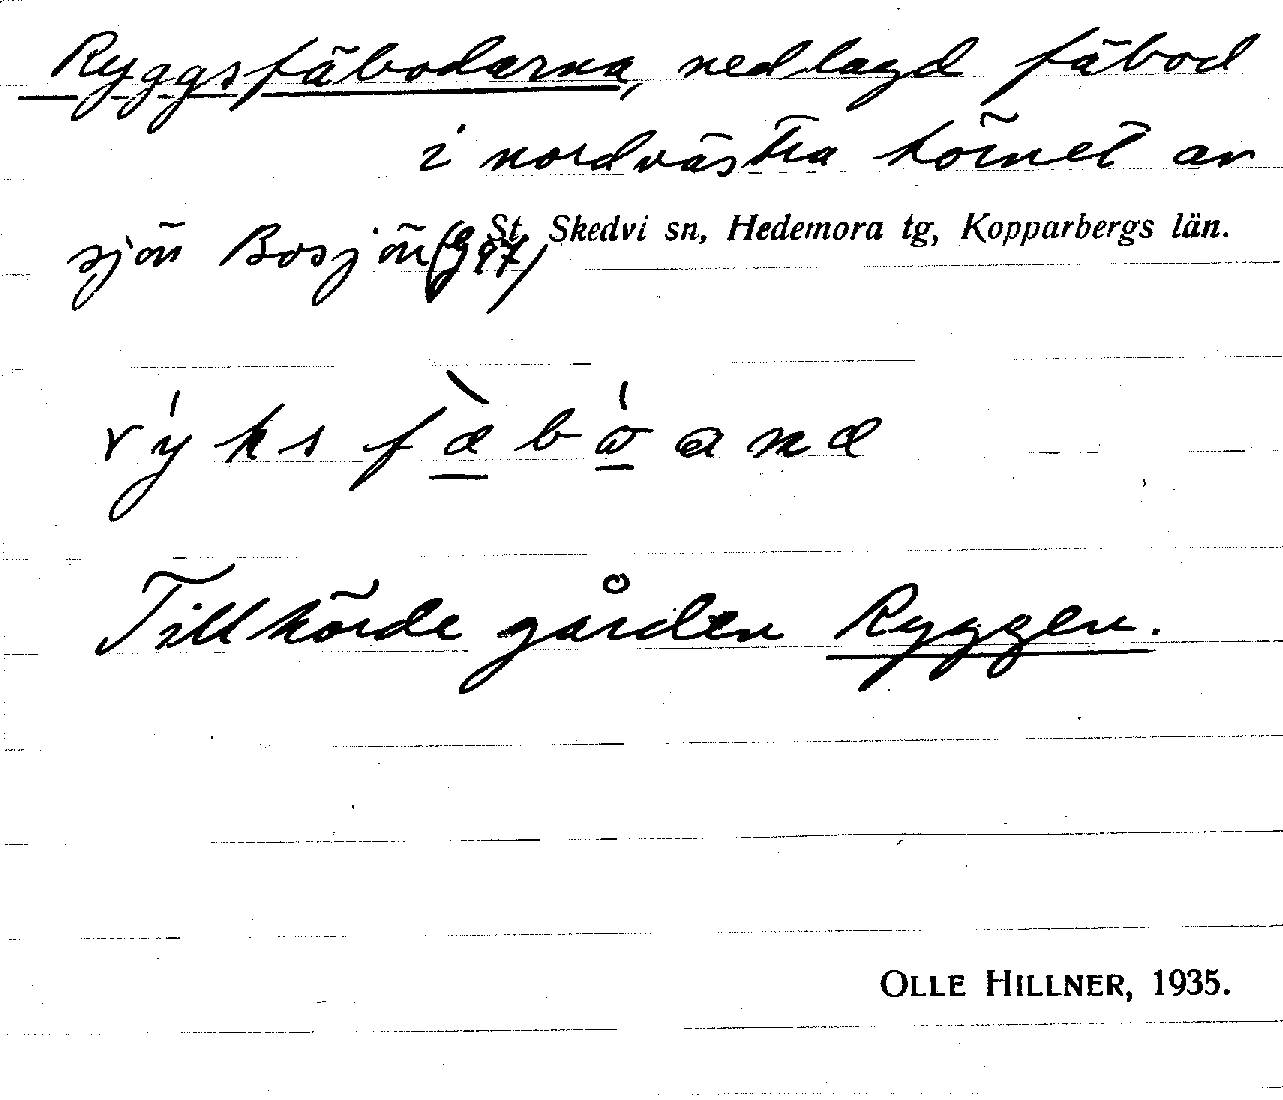 Ryggsfäbodarna, nedlagd fäbod
i nordvästra hörnet av
St. Skedvi sn, Hedemora tg, Kopparbergs län.
sjön Bosjön
Tillhörde gården Ryggen.
OLLE HILLNER, 1935.